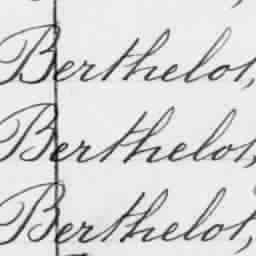 Berthelot,
Berthelot,
Berthelot,